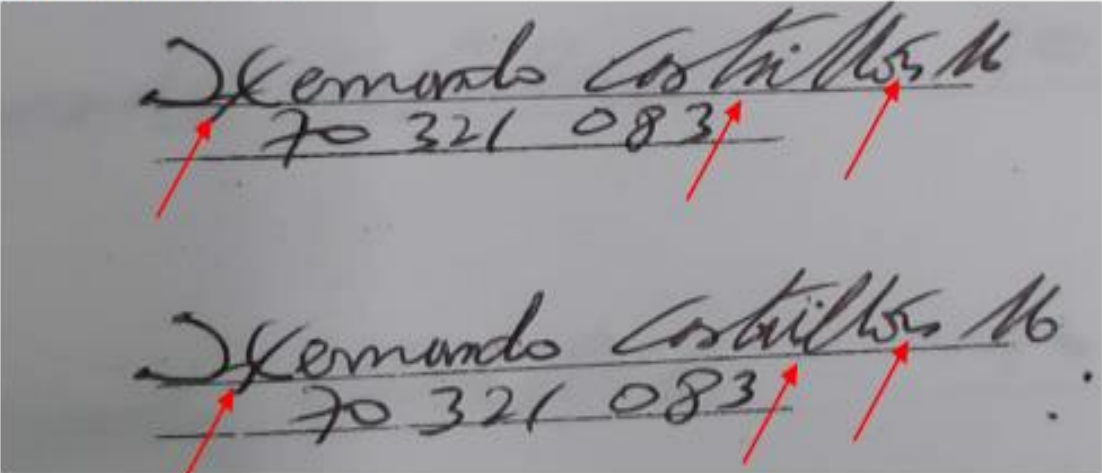 Hernando Castrillón M
70 321 083
Hernando Castrillón M
70 321 083